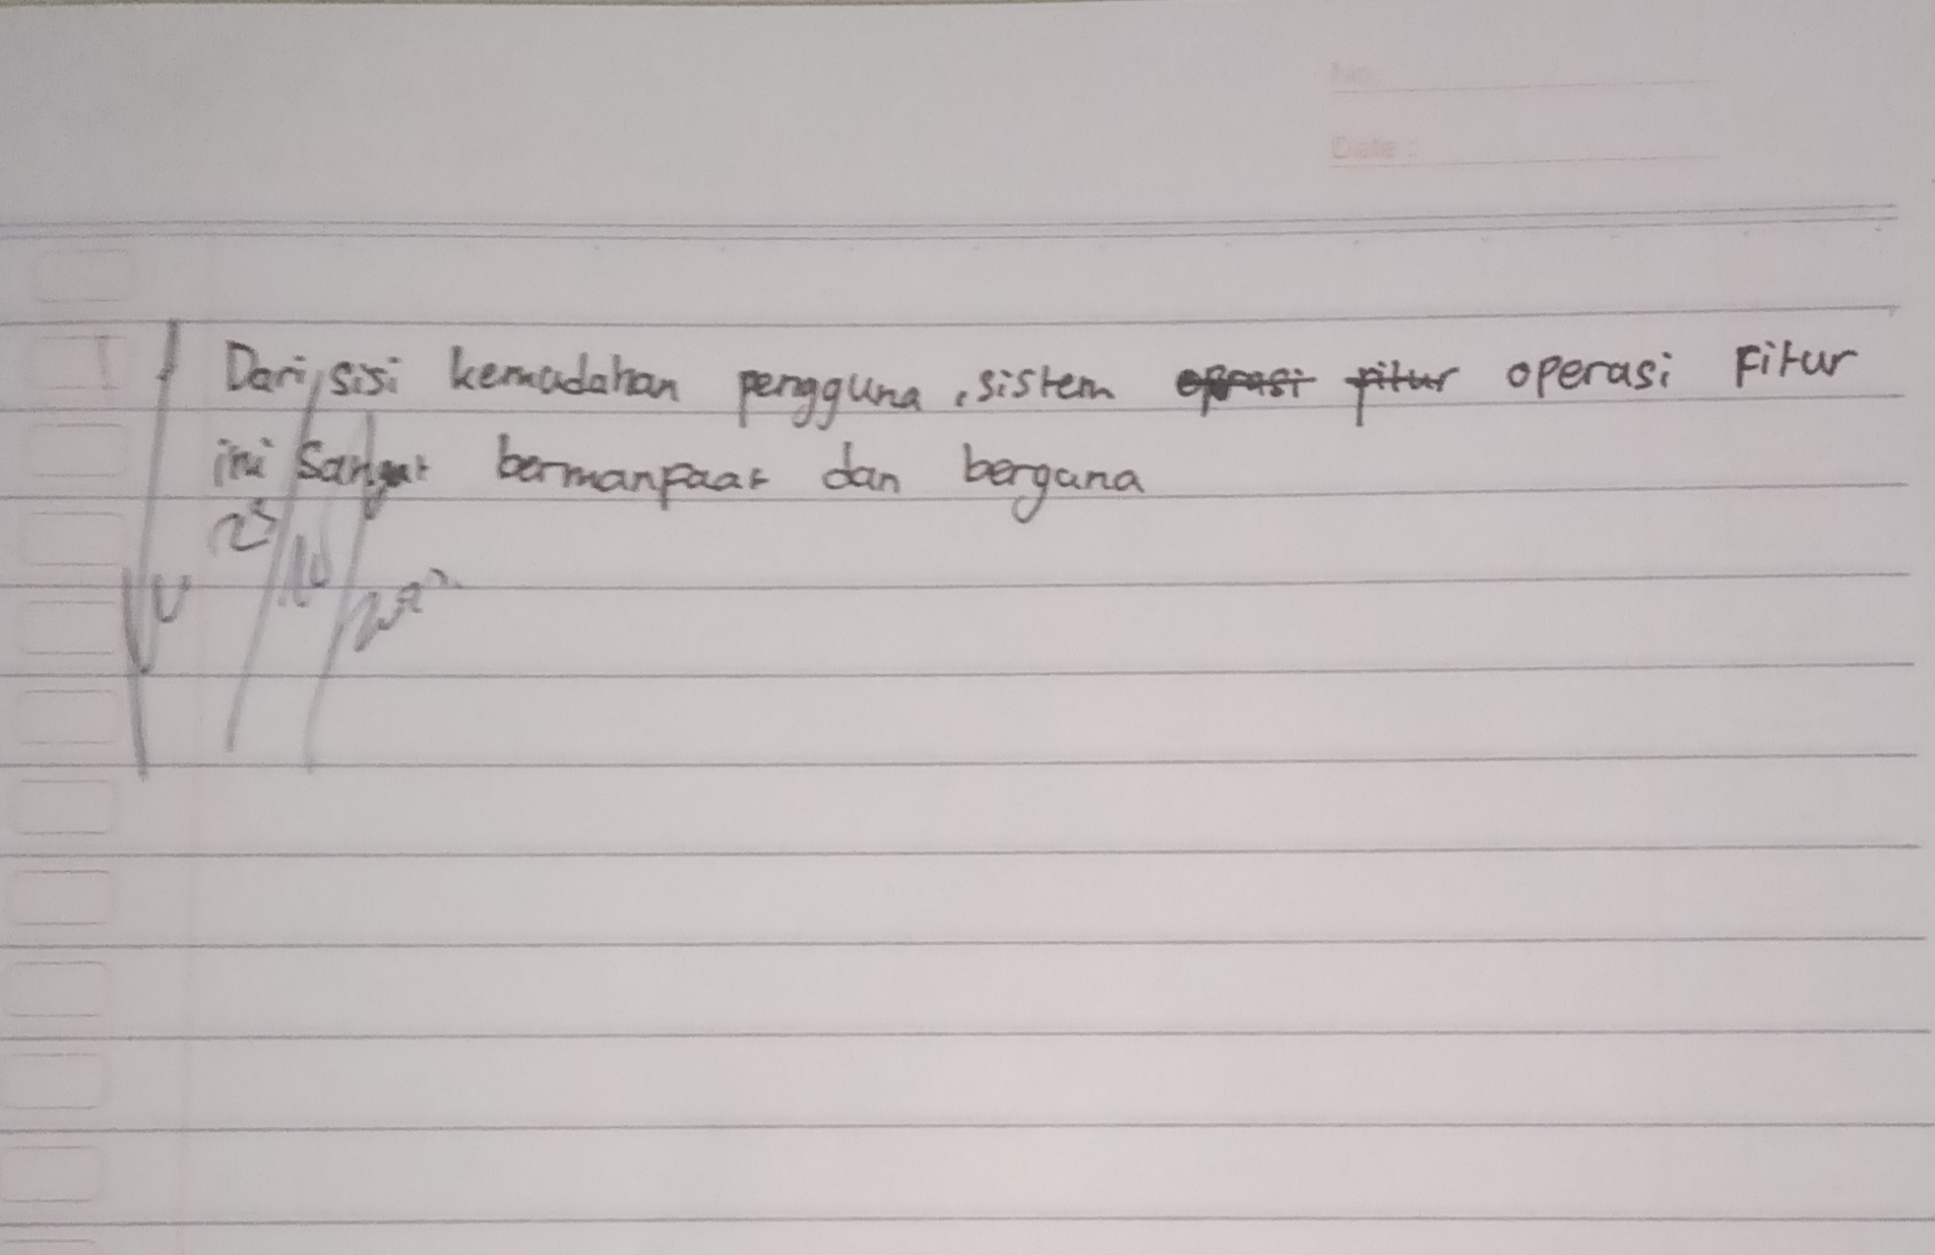 No.
Date :
Dari sisi kemudahan pengguna, sistem operasi fitur operasi Fitur
ini Sangat bermanfaat dan berguna